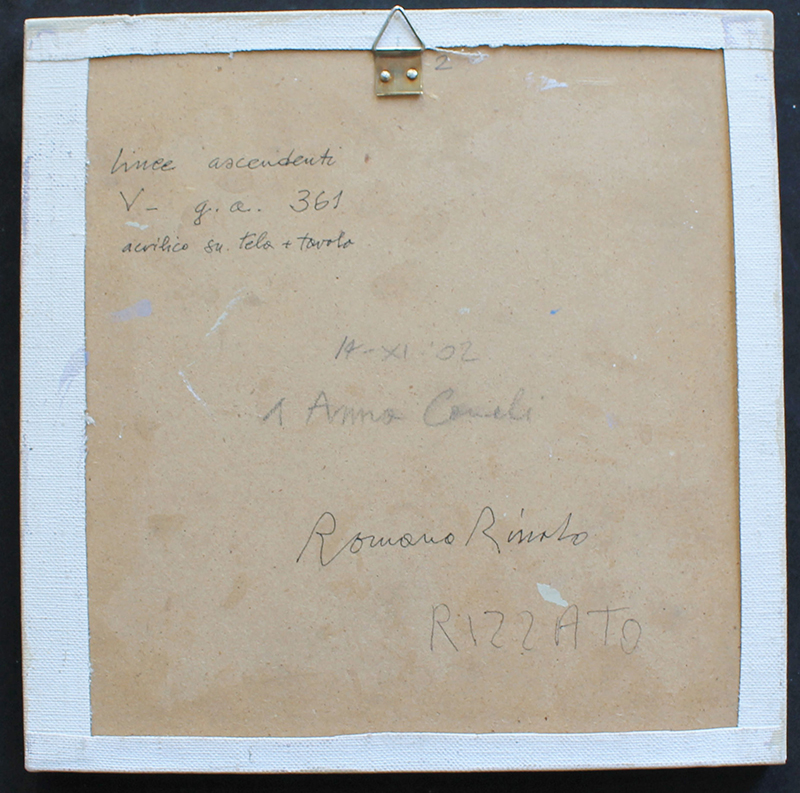 2
linee ascendenti
V- g.a. 361
acrilico su tela + tavola
XI 02
Anna
Romano Rizzato
RIZZATO